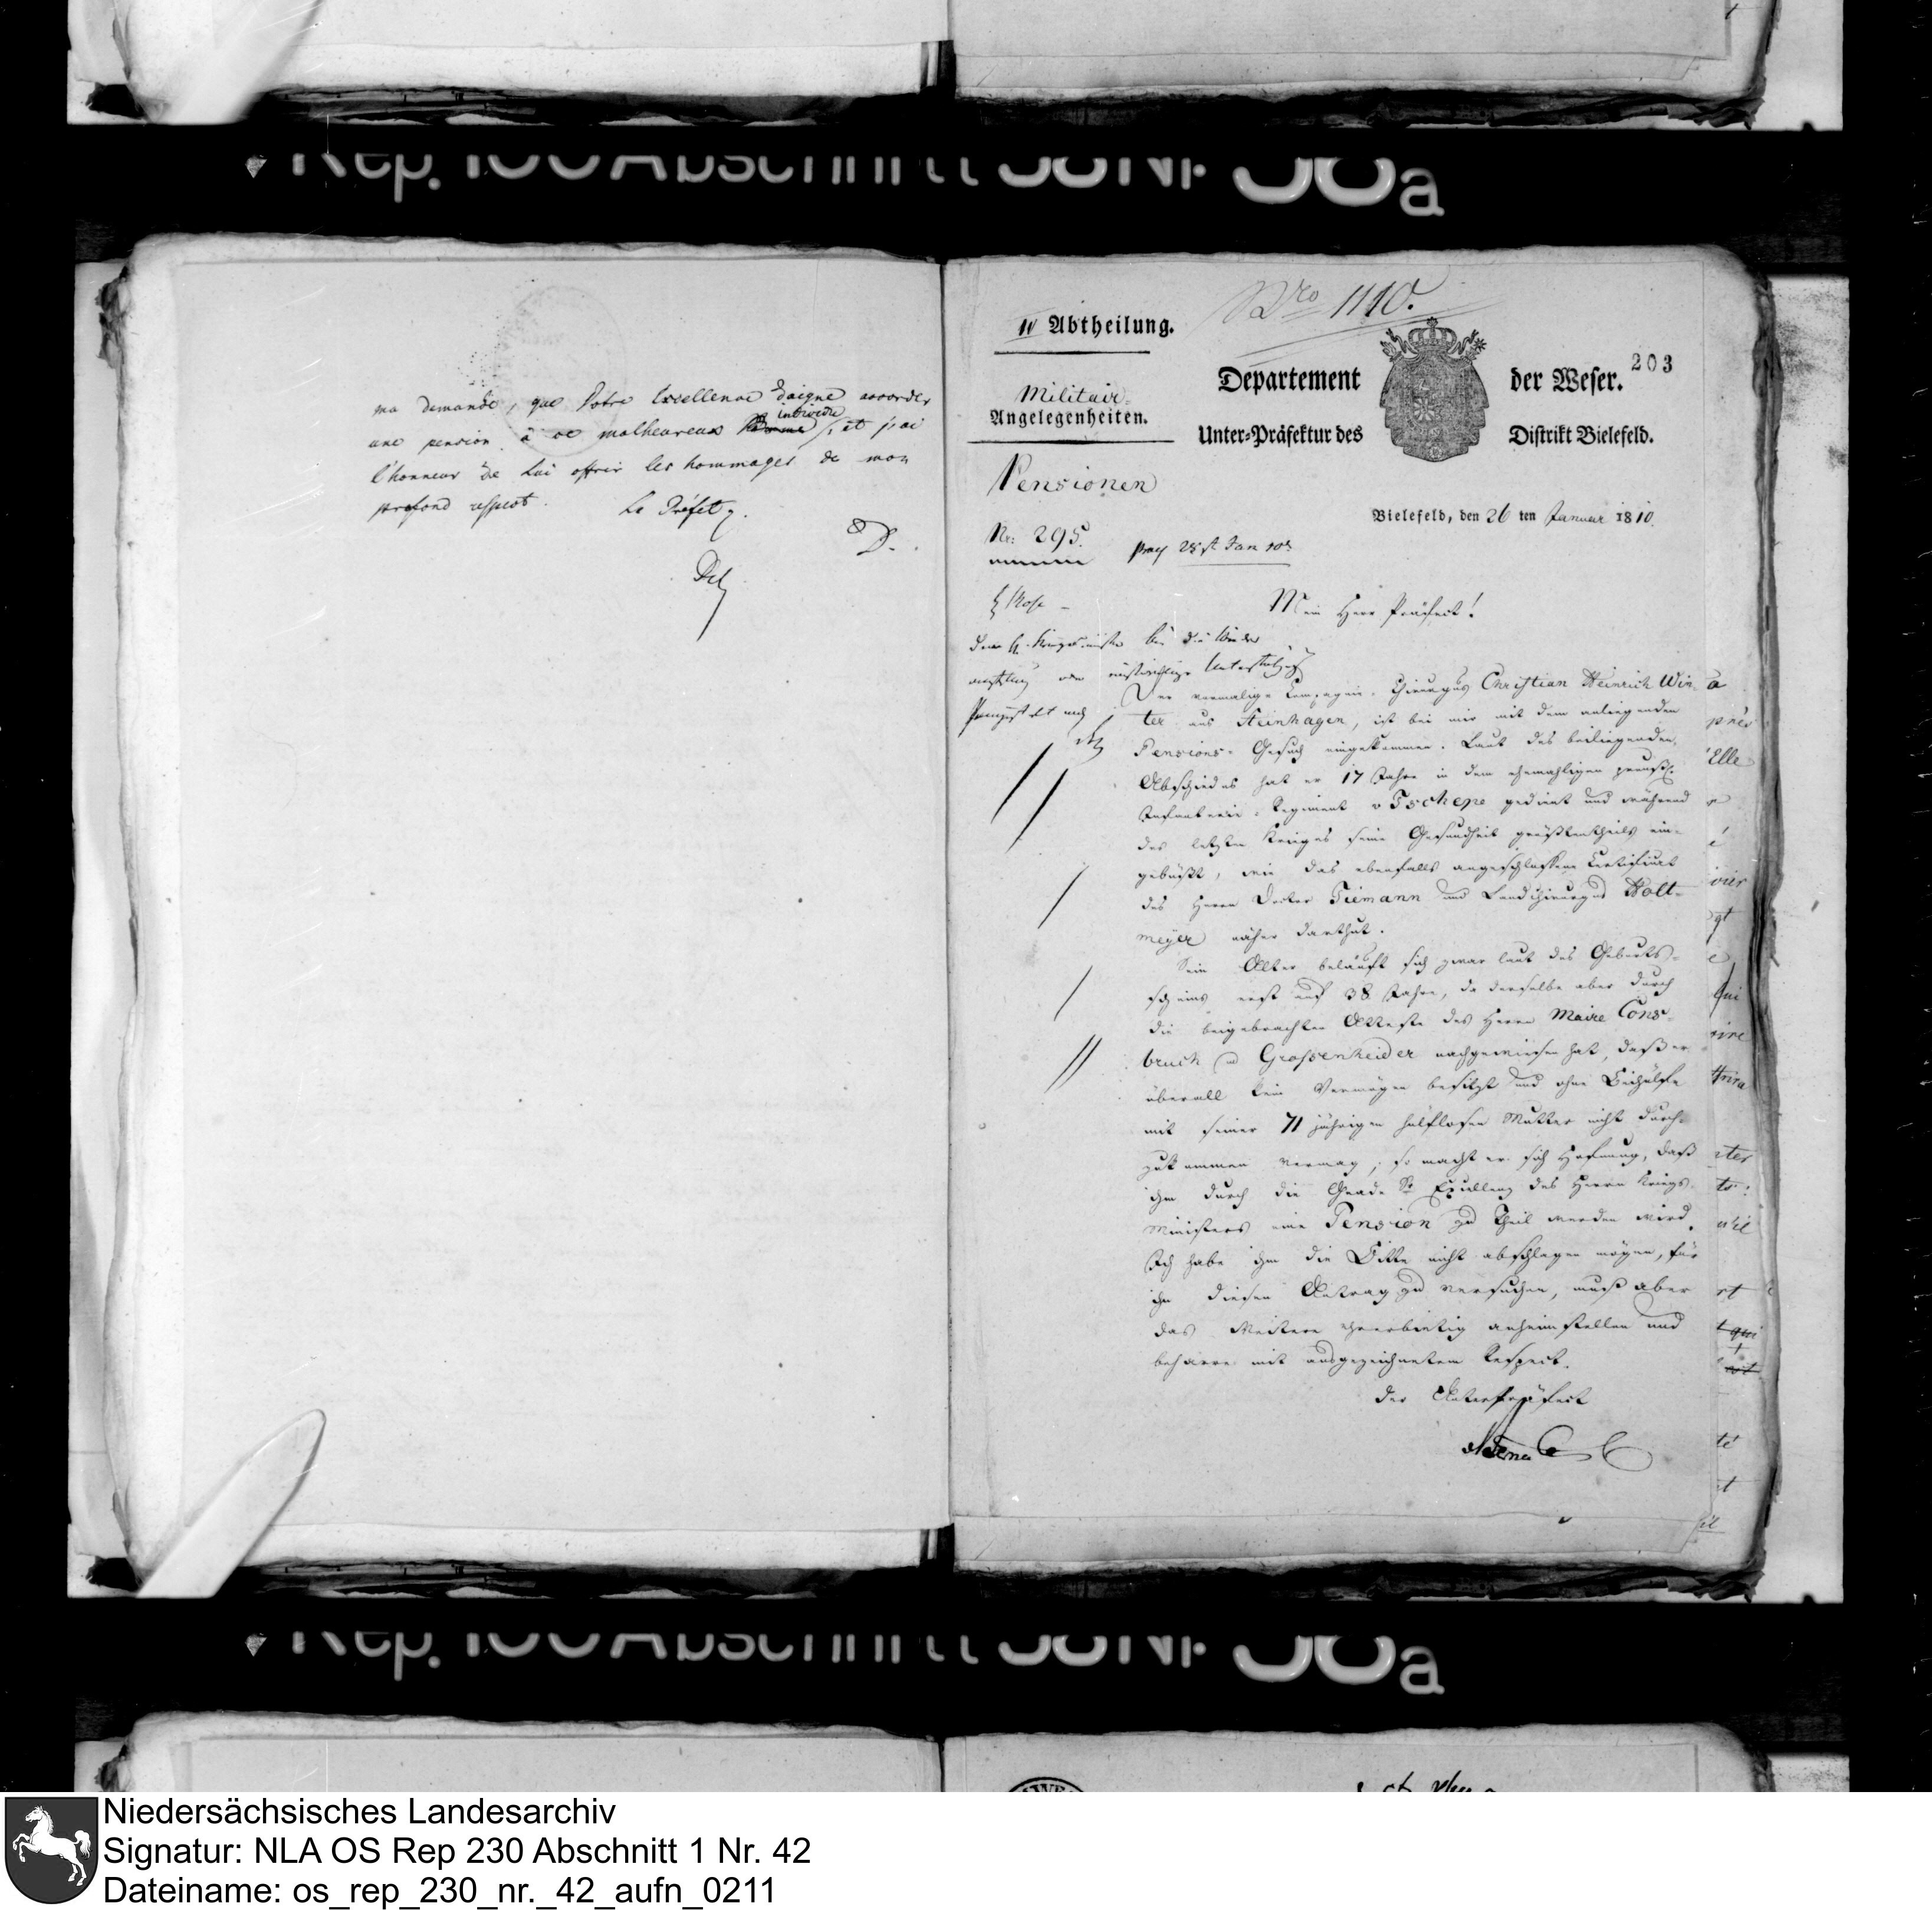 Rep. 100 Abschnitt 58 Nr 38a
ma demande, que Votre Excellence daigne accorder
une pension à ce malheureux individu, et j'ai
l'honneur de Lui offrir les hommages de mon
profond respect. Le Préfet
D.
Nro 1110.
IV Abtheilung.
Departement der Weser. 203
Militair
Angelegenheiten.
Unter-Präfektur des Distrikt Bielefeld.
Pensionen
Bielefeld, den 26 ten Januar 1810.
Nr: 295.
Mein Herr Präfect!
Der vormalige Compagnie-Chirurgus Christian Heinrich Win-
ter aus Steinhagen, ist bei mir mit dem anliegenden
Pensions-Gesuch eingekommen. Laut des beiliegenden
Abschiedes hat er 17 Jahre in dem ehemahligen preuß.
Infanterie-Regiment v Tschepe gedient und während
des letzten Krieges seine Gesundheit größtentheils ein-
gebüßt, wie das ebenfalls angeschlossene Certificat
des Herrn Doctor Tiemann und Landchirurgus Holt-
meyer näher darthut.
Sein Alter beläuft sich zwar laut des Geburts-
scheins erst auf 38 Jahre, da derselbe aber durch
die beigebrachten Atteste des Herrn Maire Cons-
bruch u Grossenheider nachgewiesen hat, daß er
überall kein Vermögen besitzt und ohne Beihülfe
mit seiner 71 jährigen hülflosen Mutter nicht durch-
zukommen vermag, so macht er sich Hofnung, daß
ihm durch die Gnade Sr Excellenz des Herrn Kriegs-
Ministers eine Pension zu Theil werden wird.
Ich habe ihm die Bitte nicht abschlagen mögen, für
ihn diesen Antrag zu versuchen, muß aber
das Weitere ehrerbietig anheimstellen und
beharre mit ausgezeichnetem Respect.
Der Unterpräfect
Rep. 100 Abschnitt 58 Nr 38a
Niedersächsisches Landesarchiv
Signatur: NLA OS Rep 230 Abschnitt 1 Nr. 42
Dateiname: os_rep_230_nr._42_aufn_0211